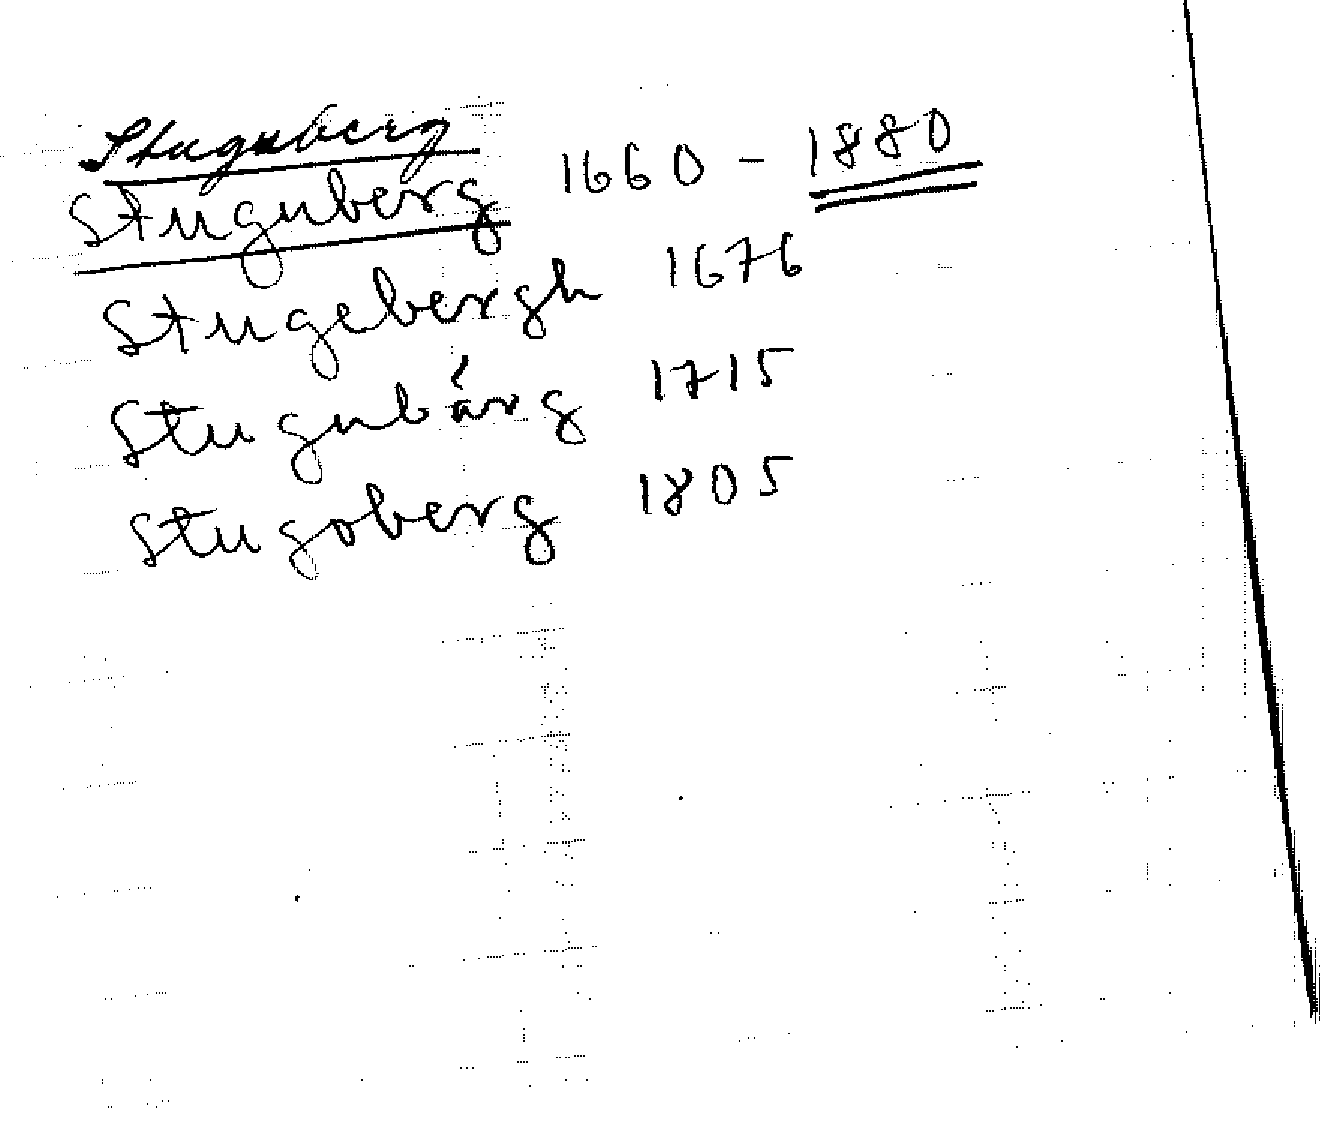 Stuguberg
Stuguberg 1660 - 1880
Stugebergh 1676
Stugubärg 1715
Stugoberg 1805